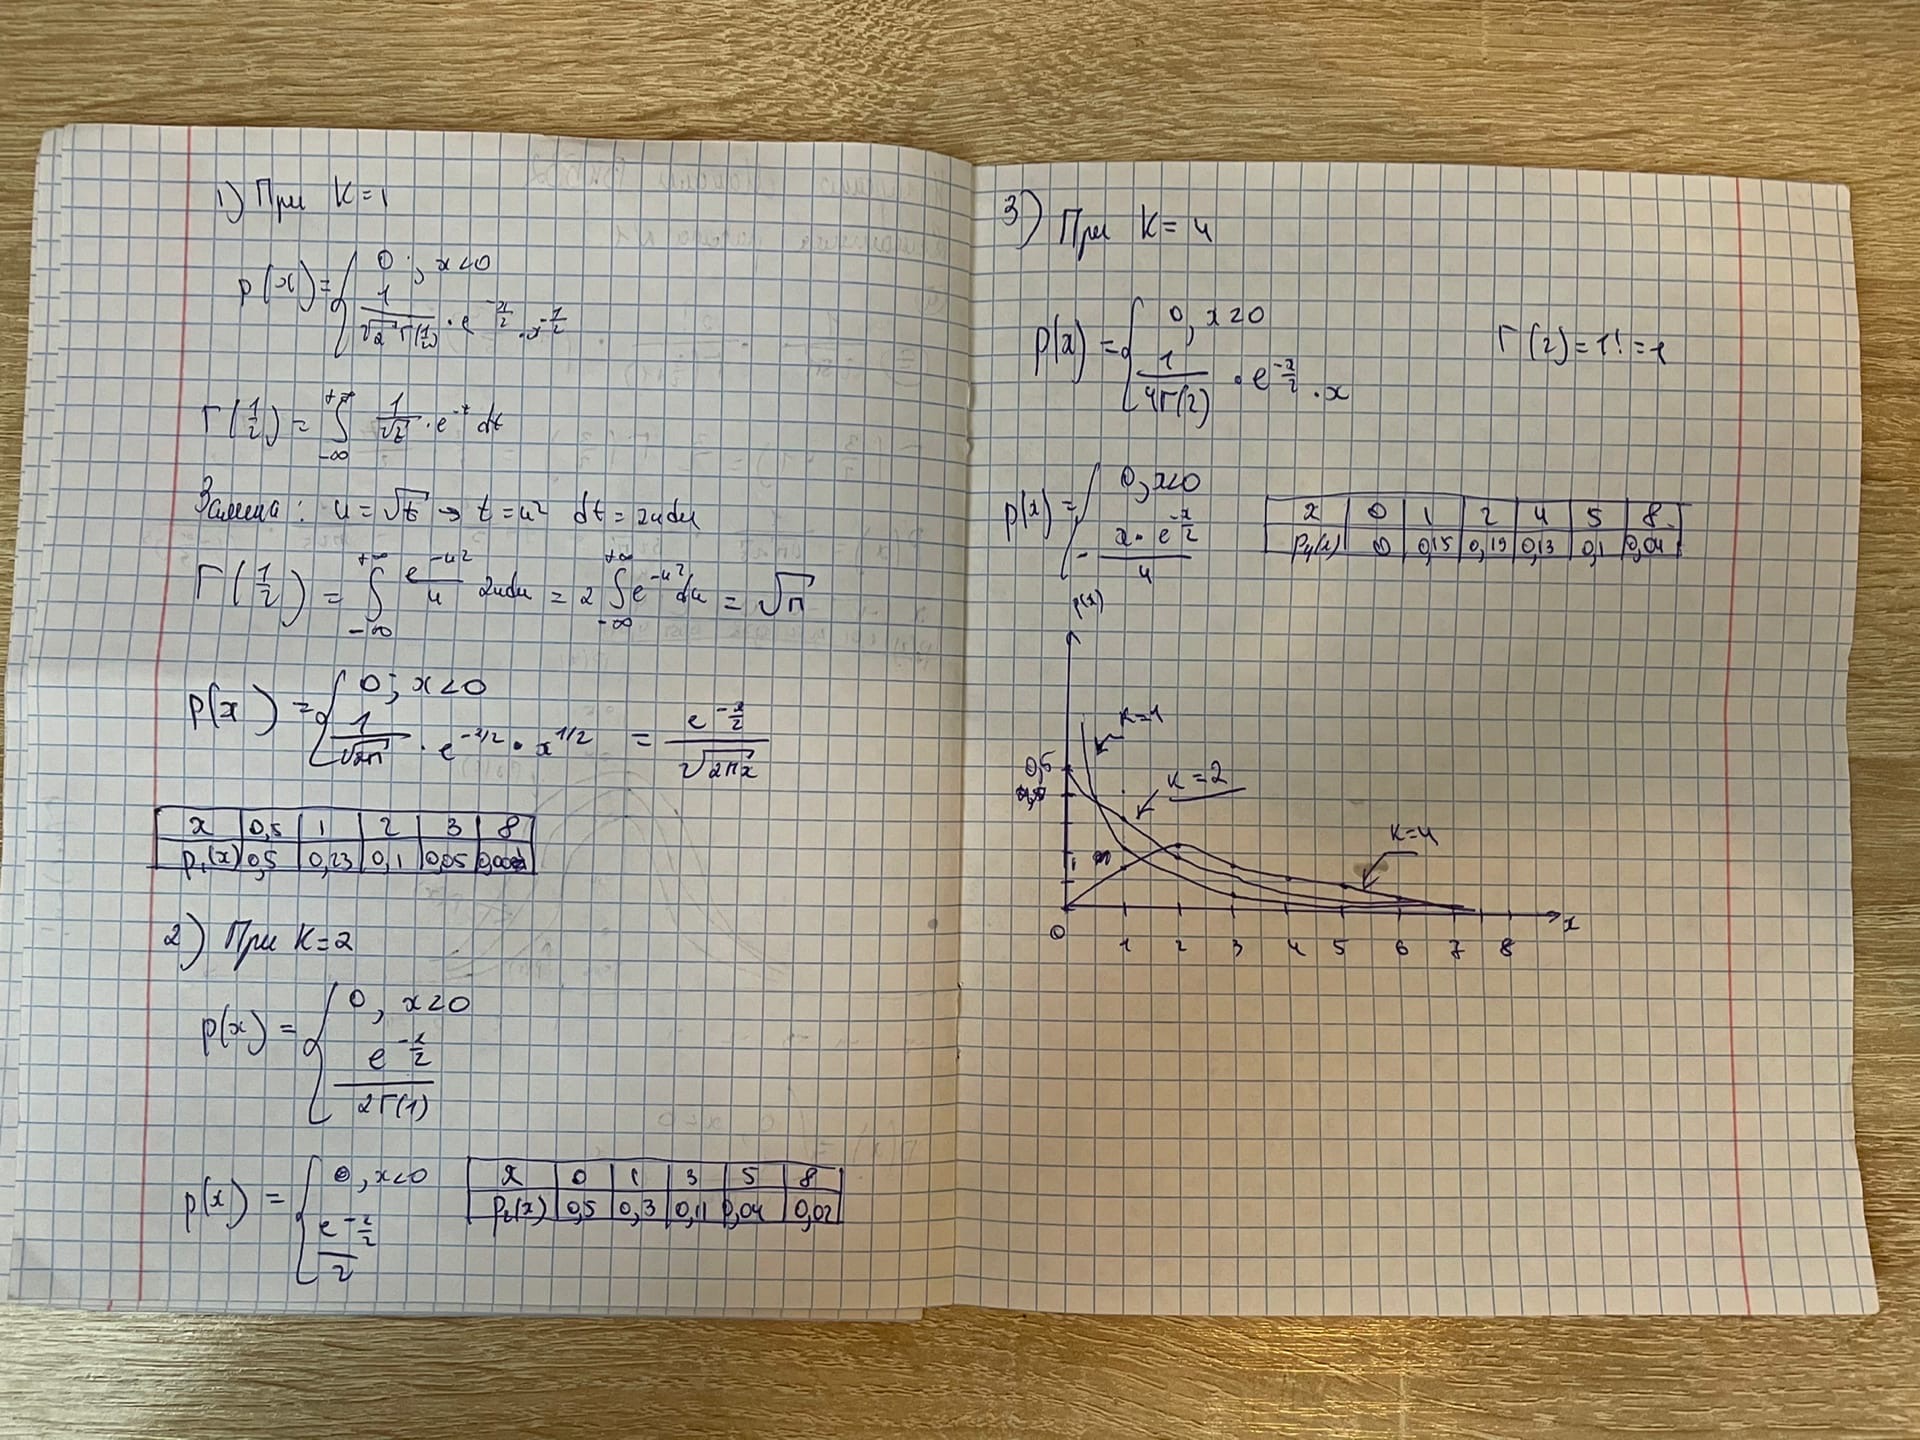 1) При K=1
p(x) = { 0 ; x<0
1/(√2 Γ(1/2)) · e^(-x/2) · x^(-1/2)
Γ(1/2) = ∫_{-∞}^{+∞} 1/√t · e^(-t) dt
Замена: u = √t → t = u² dt = 2udu
Γ(1/2) = ∫_{-∞}^{+∞} e^(-u²)/u 2udu = 2 ∫_{-∞}^{+∞} e^(-u²) du = √π
p(x) = { 0 ; x<0
1/√2π · e^(-x/2) · x^(1/2) = e^(-x/2)/√2πx
x 0,5 1 2 3 8
p₁(x) 0,5 0,23 0,1 0,05
2) При K=2
p(x) = { 0, x<0
e^(-x/2)/2Γ(1)
p(x) = { 0, x<0
e^(-x/2)/2
x 0 1 3 5 8
p₂(x) 0,5 0,3 0,11 0,04 0,02
3) При K=4
p(x) = { 0, x<0
1/4Γ(2) · e^(-x/2) · x
Γ(2) = 1! = 1
p(x) = { 0, x<0
x · e^(-x/2)/4
x 0 1 2 4 5 8
p₄(x) 0 0,15 0,19 0,13 0,1 0,04
p(x)
K=1
0,5
K=2
K=4
0 1 2 3 4 5 6 7 8 x